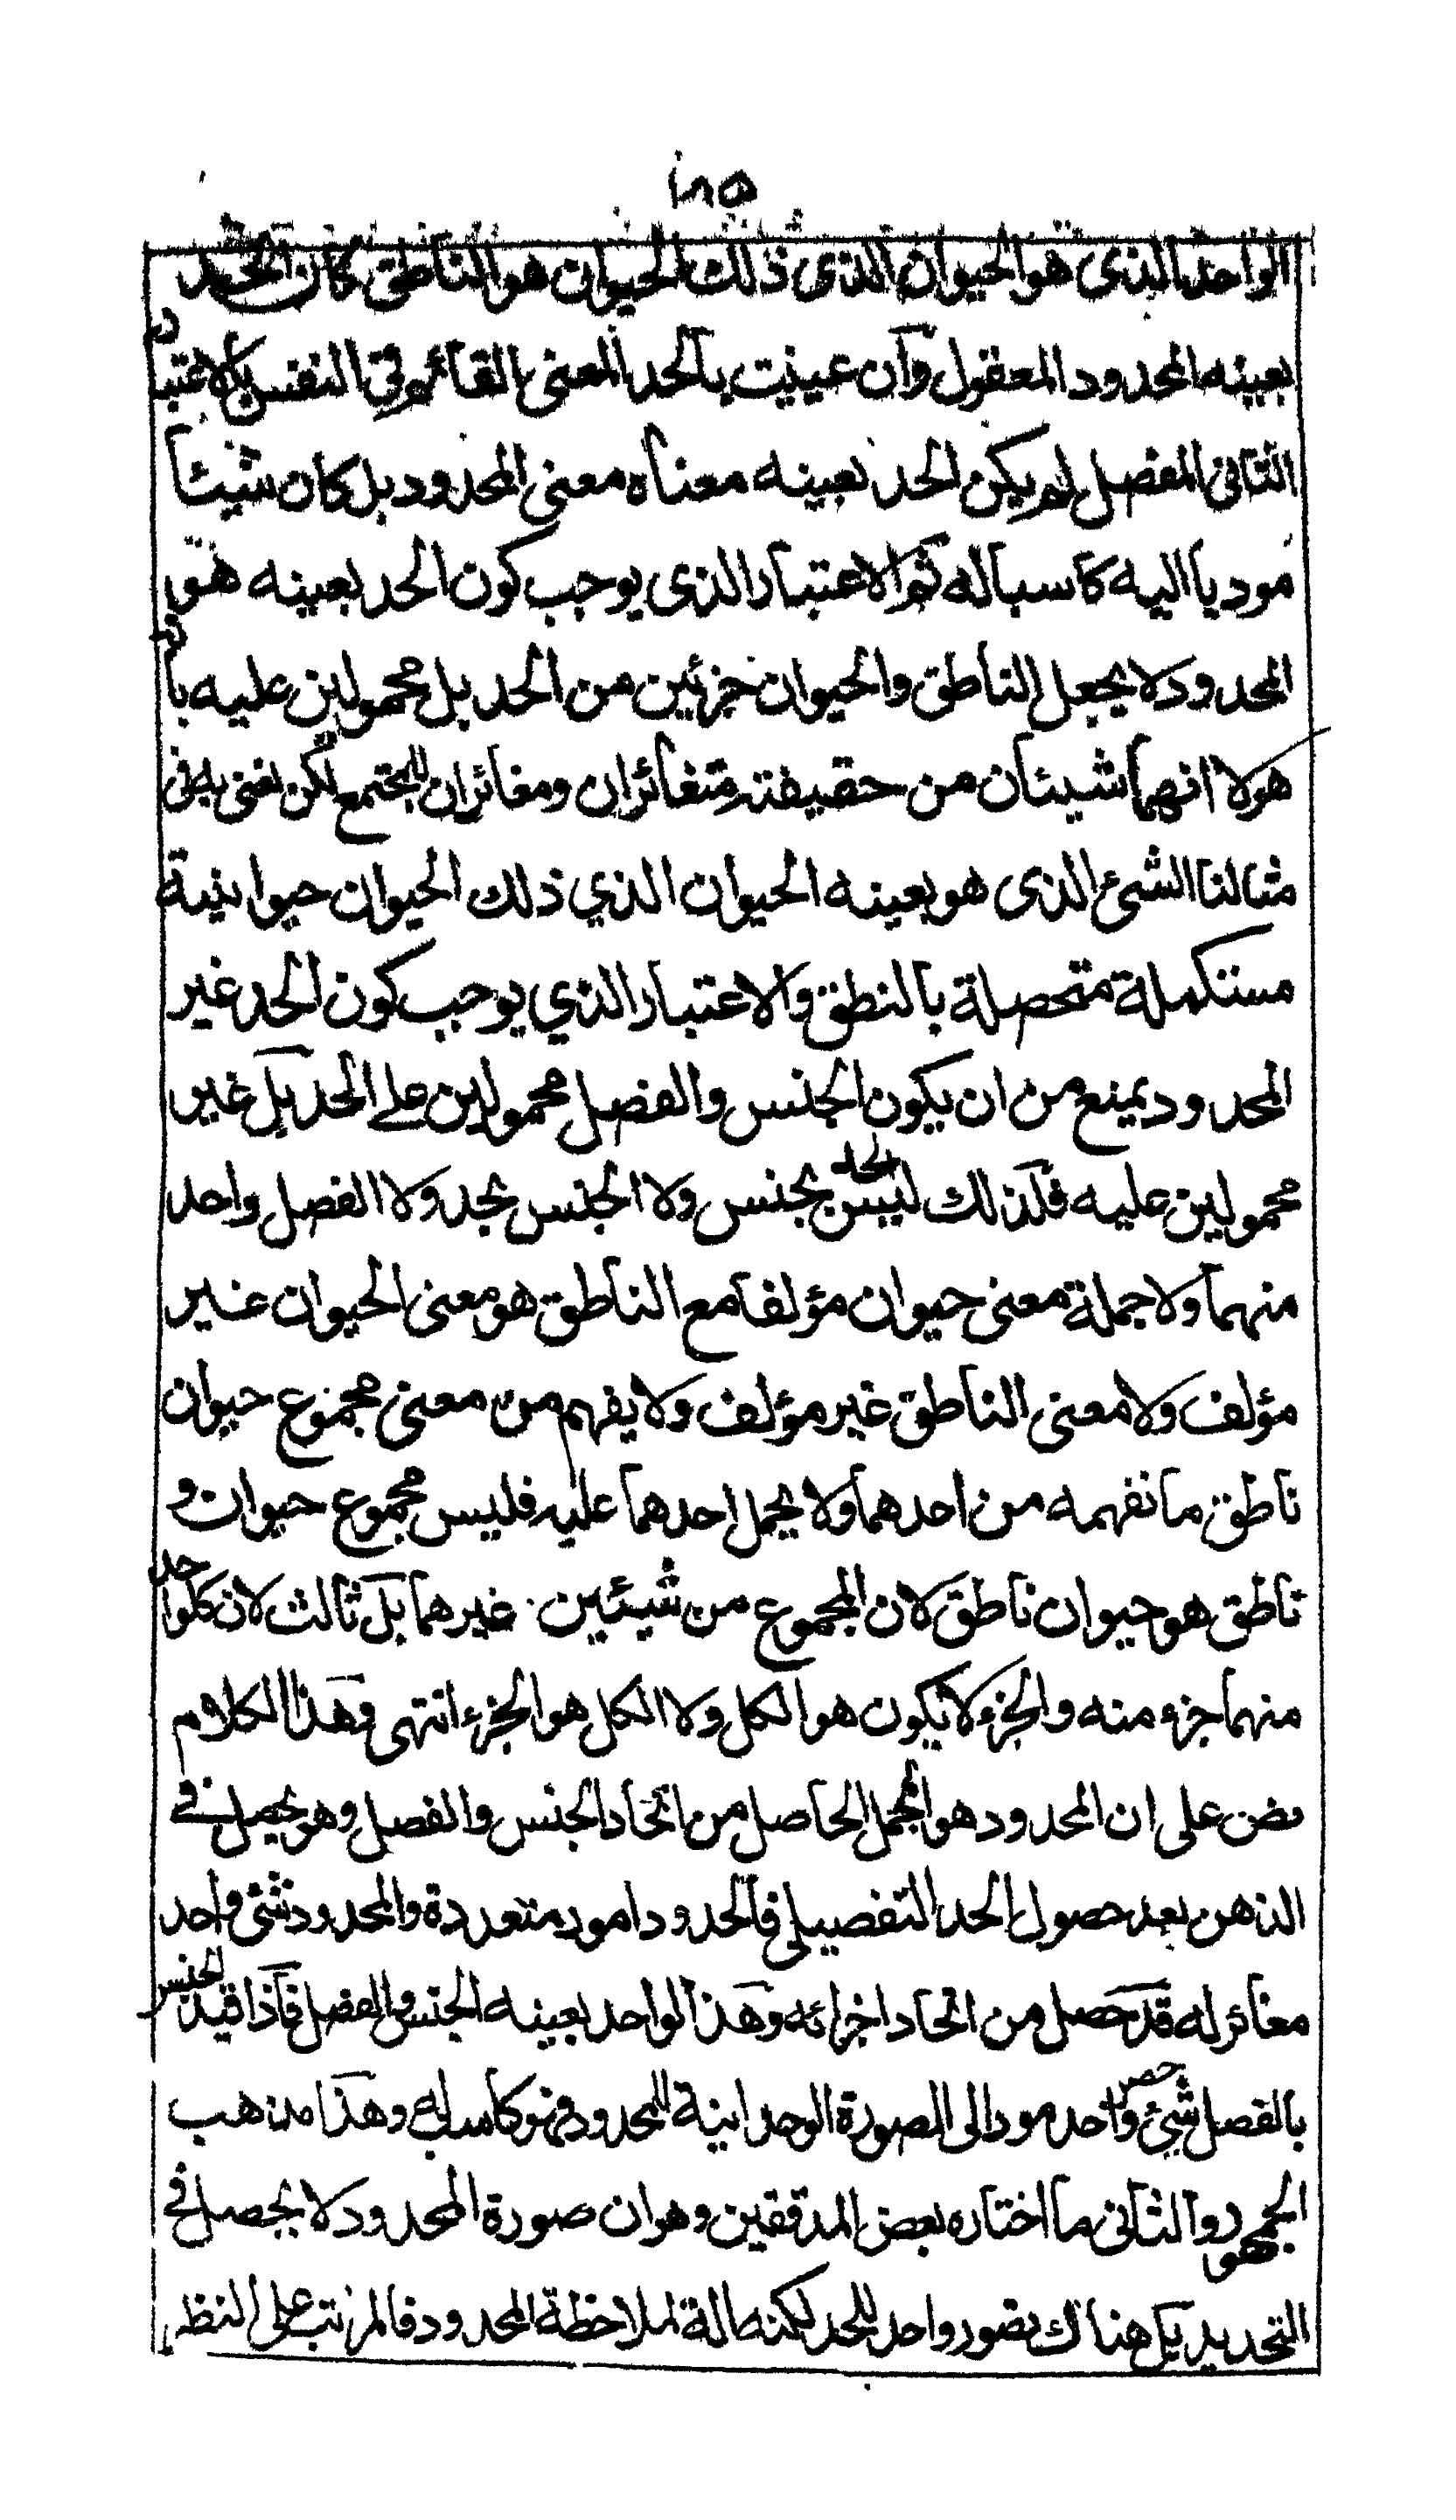 ١٨٥
الواحد الذى هو الحيوان الذى ذلك الحيوان هو الناطق كان الحد
بعينه المحدود المعقول وان عينت بالحد المعنى القائم فى النفس بالاعتبار
الثانى المفصل لم يكن الحد بعينه معناه معنى المحدود بل كان شيئا
موديا اليه كاسبا له ثم الاعتبار الذى يوجب كون الحد بعينه هو
المحدود لا يجعل الناطق والحيوان جزئين من الحد بل محمولين عليه بانه
هولا انهما شيئان من حقيقته متغائران ومغائران للمجتمع لكن نعنى به فى
مثالنا الشئ الذى هو بعينه الحيوان الذي ذلك الحيوان حيوانية
مستكملة متحصلة بالنطق والاعتبار الذي يوجب كون الحد غير
المحدود يمنع من ان يكون الجنس والفصل محمولين على الحد بل غير
محمولين عليه فلذلك ليس الحد بجنس ولا الجنس بحد ولا الفصل واحد
منهما ولا جملة معنى حيوان مؤلفا مع الناطق هو معنى الحيوان غير
مؤلف ولا معنى الناطق غير مؤلف ولا يفهم من معنى مجموع حيوان
ناطق ما نفهمه من احدهما ولا يحمل احدهما عليه فليس مجموع حيوان و
ناطق هو حيوان ناطق لان المجموع من شيئين غيرهما بل ثالث لان كلواحد
منهما جزء منه والجزء لا يكون هو الكل ولا الكل هو الجزء انتهى وهذا الكلام
نص على ان المحدود هو المجمل الحاصل من اتحاد الجنس والفصل وهو يحصل فى
الذهن بعد حصول الحد التفصيلى فالحدود امور متعددة والمحدود شئ واحد
مغائر له قد حصل من اتحاد اجزائه وهذا الواحد بعينه الجنس والفصل فاذا قيد الجنس
بالفصل حصل شئ واحد مود الى الصورة الوحدانية للمحدود فهو كاسب له وهذا مذهب
الجمهور والثانى ما اختاره بعض المدققين وهو ان صورة المحدود لا يحصل فى
التحديد بل هناك تصور واحد للحد لكنه الة لملاحظة المحدود فالمرتب على النظر